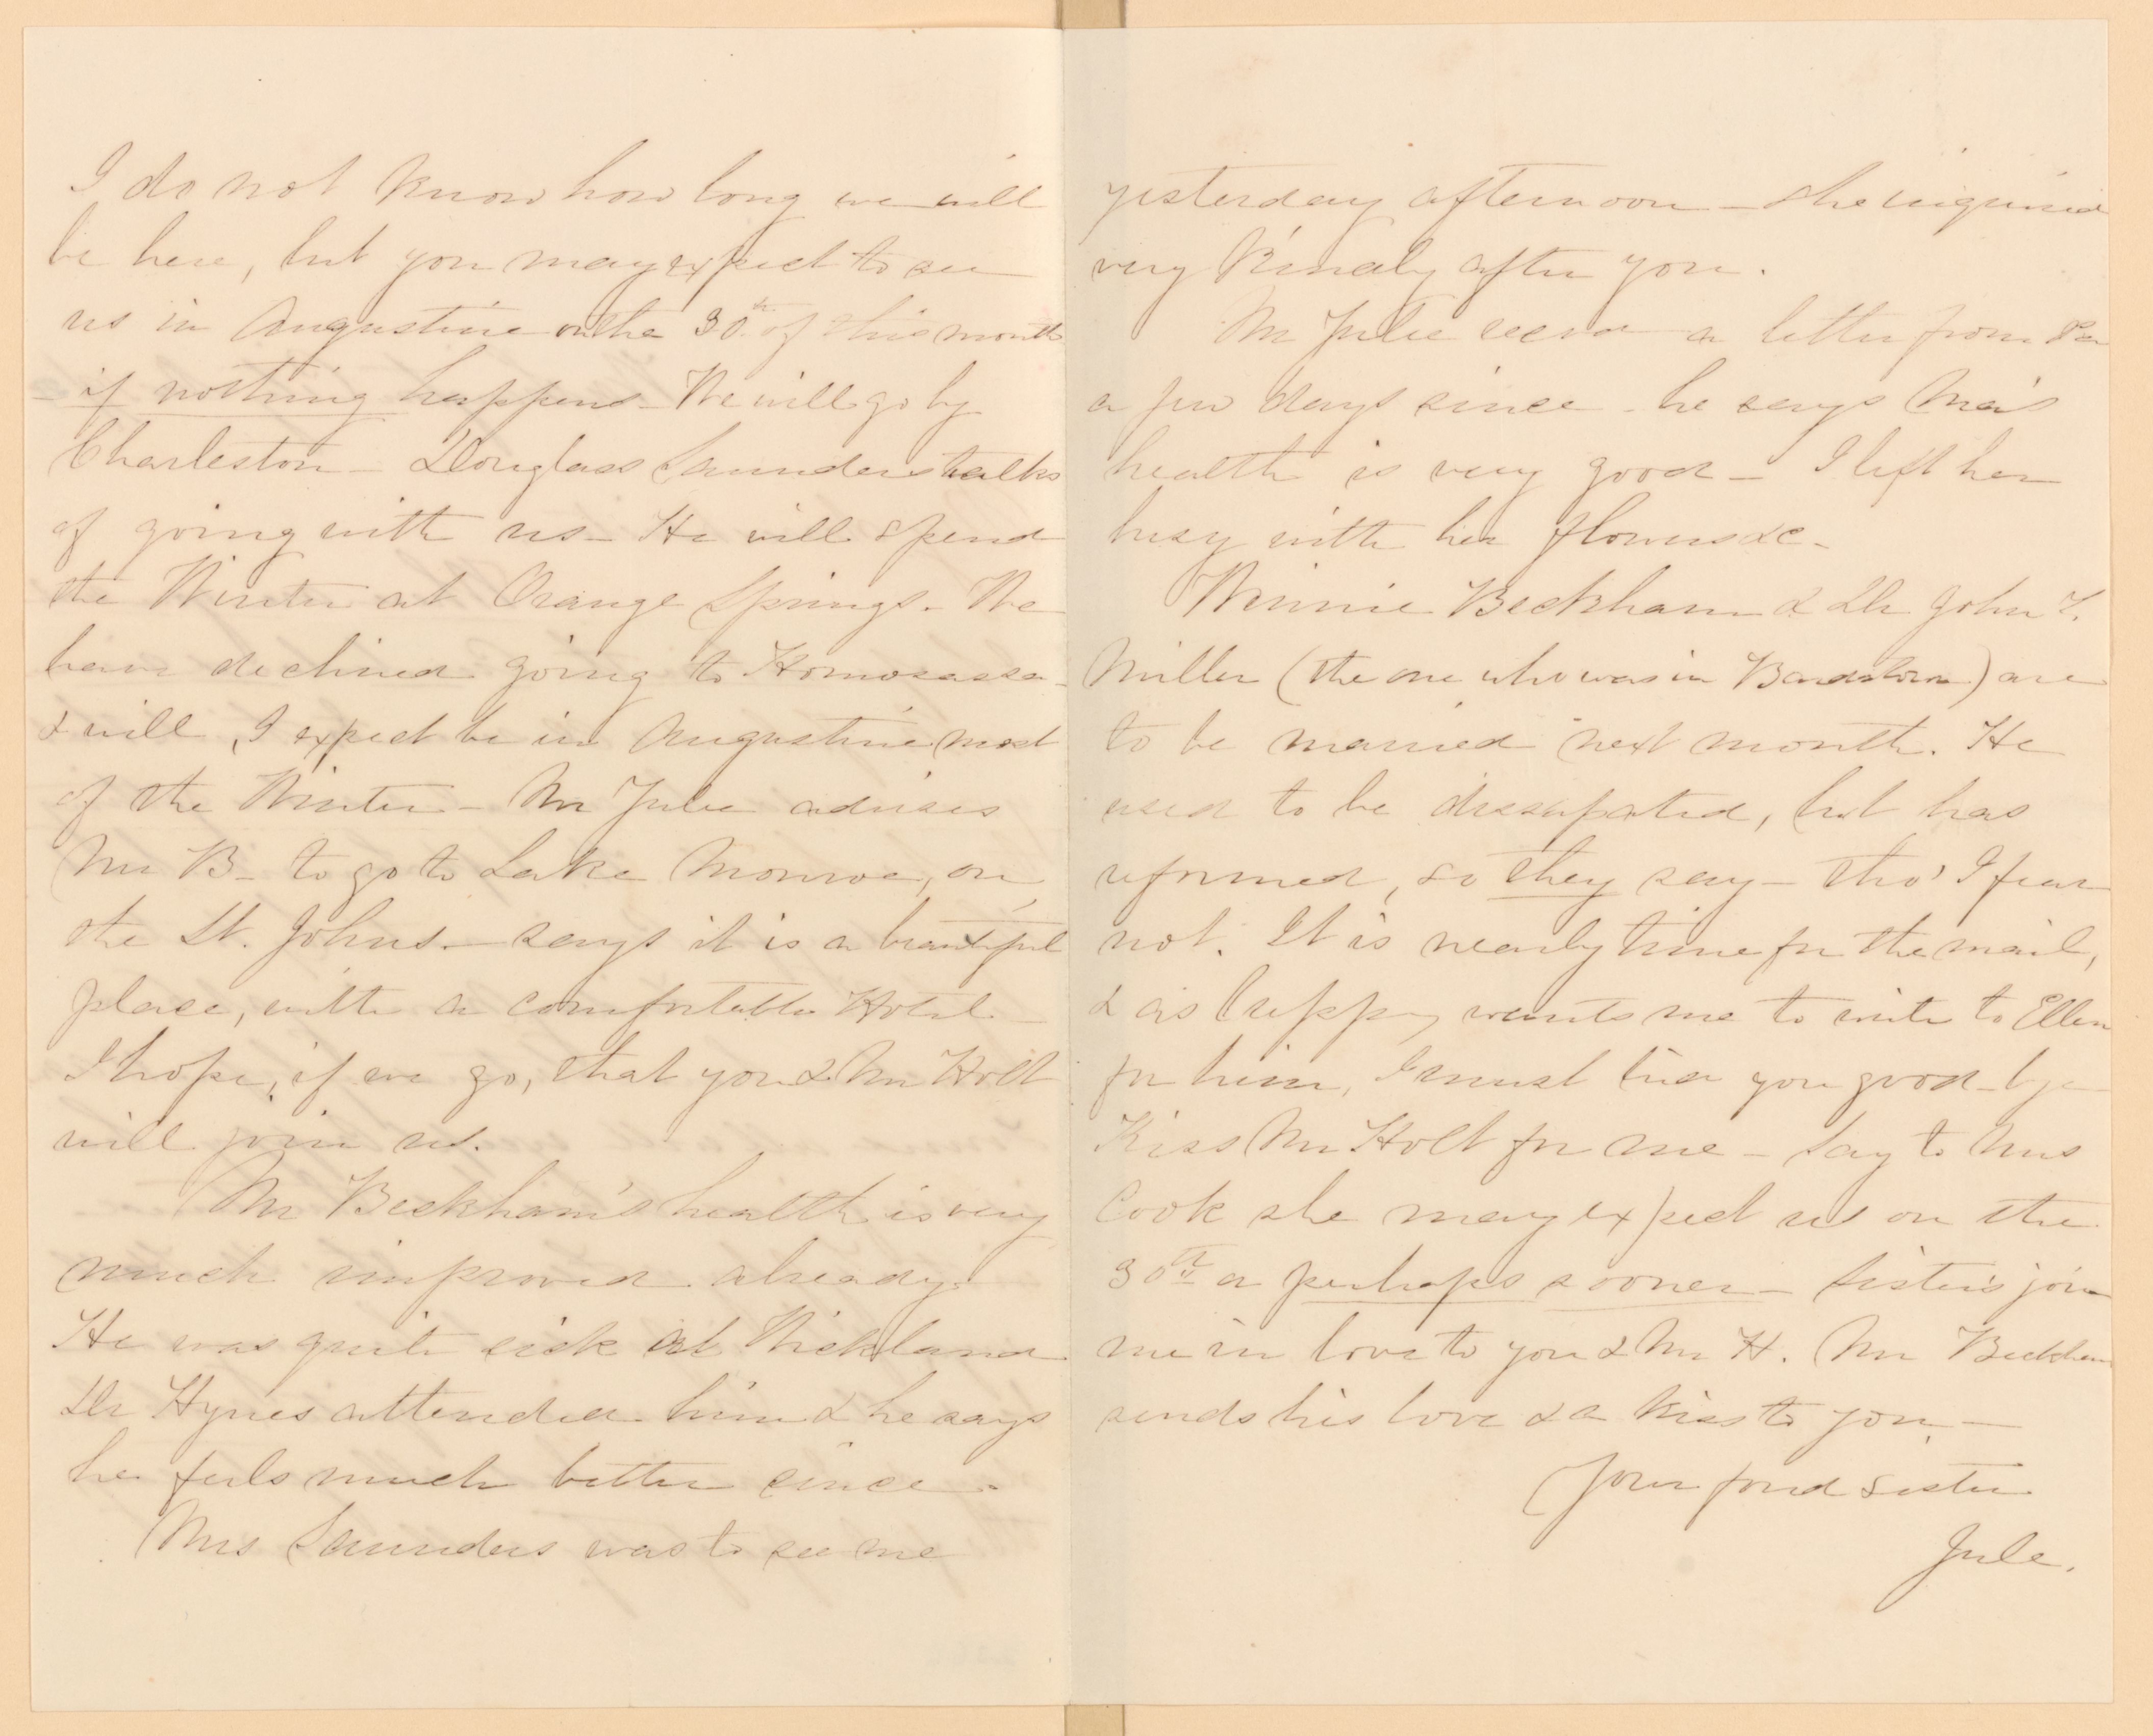 I do not know how long we will
be here, but you may expect to see
us in Augustine on the 30th. of this month
- if nothing happens - We will go by
Charleston - Douglass Saunders talks
of going with us - He will spend
the Winter at Orange Springs. We
have declined going to Homosassa -
& will, I expect be in Augustine most
of the Winter - Mr Yulee advises
Mr B - to go to Lake Monroe, on
the St. Johns. - says it is a beautiful
place, with a comfortable Hotel -
I hope, if we go, that you & Mr Holt
will join us.
Mr Beckham's health is very
much improved already.
He was quite sick at Wickland
Dr Hynes attended him & he says
he feels much better since.
Mrs Saunders was to see me
yesterday afternoon - She inquired
very kindly after you.
Mr Yulee recvd a letter from Pa
a few days since - he says Ma's
health is very good - I left her
busy with her flowers &c -
Winnie Beckham & Dr John
Miller (the one who was in Bardstown) are
to be married next month. He
used to be dissapated, but has
reformed, so they say - tho' I fear
not. It is nearly time for the mail,
& as wants me to write to Ellen
for him, I must bid you good-bye
Kiss Mr Holt for me - Say to Mrs
Cook she may expect us on the
30th or perhaps sooner - Sister's join
me in love to you & Mr H. Mr Beckham
sends his love & a kiss to you -
Your fond sister
Jule.